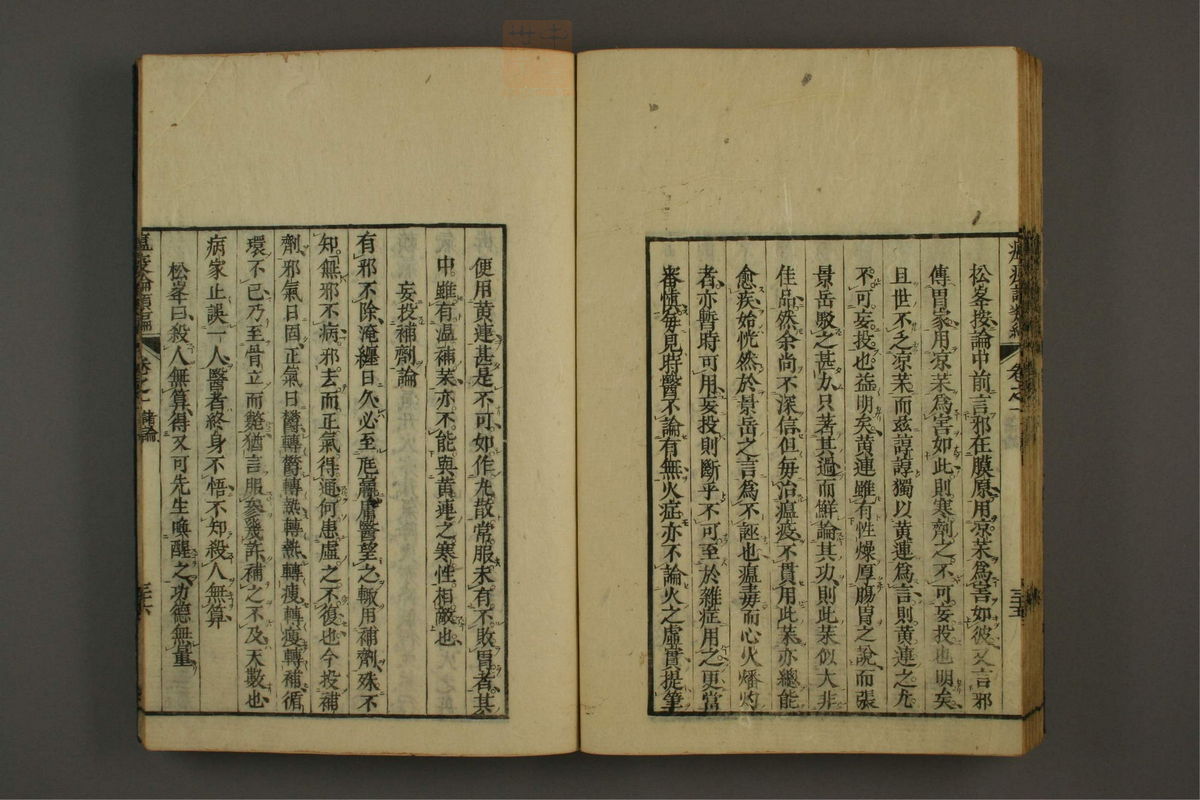 松峯按論中前言邪在膜原用凉藥爲害如彼又言邪
傳胃家用凉藥爲害如此則寒劑之不可妄投也明矣
且世不乏凉藥而兹諄諄獨以黄連爲言則黄連之尤
不可妄投也益明矣黄連雖有性燥厚腸胃之說而張
景岳駁之甚力只著其過而鮮論其功則此藥似大非
佳品然余尚不深信但毎治瘟疫不貫用此藥亦總能
愈疾始恍然於景岳之言爲不誣也瘟毒而心火燔灼
者亦暫時可用妄投則斷乎不可至於雜症用之更當
審愼毎見時醫不論有無火症亦不論火之虛實提筆
卷之一
三十五
便用黄連甚是不可如作丸散常服未有不敗胃者其
中雖有温補藥亦不能與黄連之寒性相敵也
妄投補劑論
有邪不除淹纏日久必至尫羸庸醫望之輒用補劑殊不
知無邪不病邪去而正氣得通何患虛之不復也今投補
劑邪氣日固正氣日鬱轉鬱轉熱轉熱轉瘦轉瘦轉補循
環不已乃至骨立而斃猶言服參幾許補之不及天數也
病家止誤一人醫者終身不悟不知殺人無算
松峯曰殺人無算得又可先生喚醒之功德無量
瘟疫論類編
卷之一
諸論
三十六